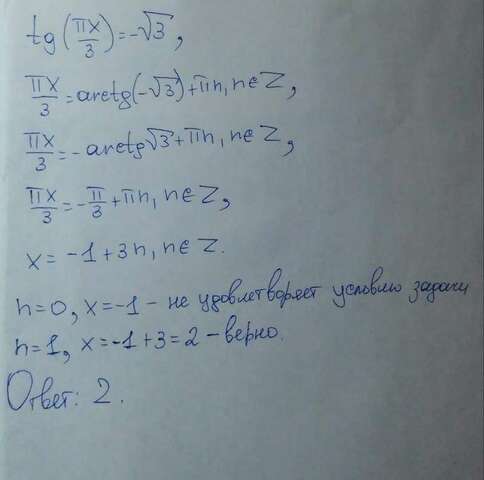 tg(πx/3)=-√3,
πx/3=arctg(-√3)+πn, n∈Z,
πx/3=-arctg√3+πn, n∈Z,
πx/3=-π/3+πn, n∈Z,
x=-1+3n, n∈Z.
n=0, x=-1 - не удовлетворяет условию задачи
n=1, x=-1+3=2 - верно.
Ответ: 2.